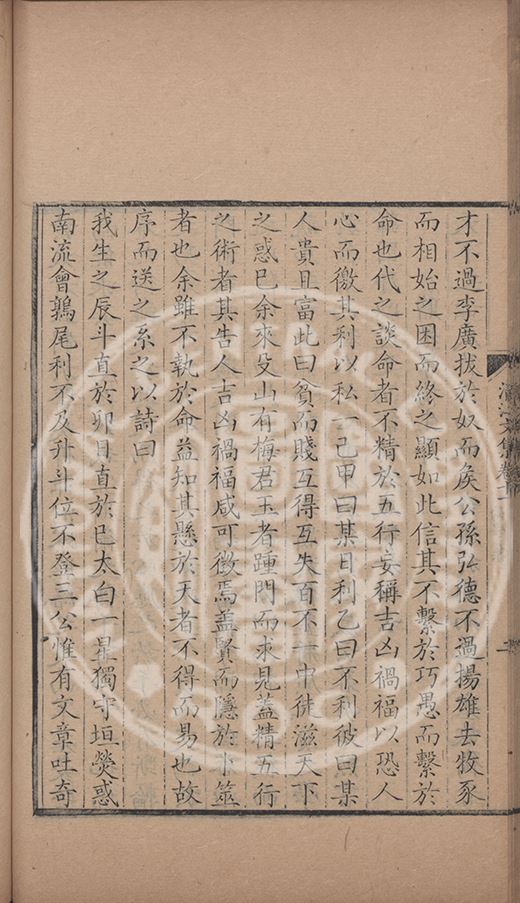 才不過李廣拔於奴而矦公孫弘德不過揚雄去牧豕
而相始之困而終之顯如此信其不繫於巧愚而繫於
命也代之談命者不精於五行妄稱吉凶禍福以恐人
心而徼其利以私一己甲曰某日利乙曰不利彼曰某
人貴且富此曰貧而賤互得互失百不一中徒滋天下
之惑已余來殳山有梅君玉者踵門而求見蓋精五行
之術者其告人吉凶禍福咸可徵焉蓋賢而隱於卜筮
者也余雖不執於命益知其懸於天者不得而易也故
序而送之系之以詩曰
我生之辰斗直於卯日直於巳太白一星獨守垣熒惑
南流會鶉尾利不及升斗位不登三公惟有文章吐奇